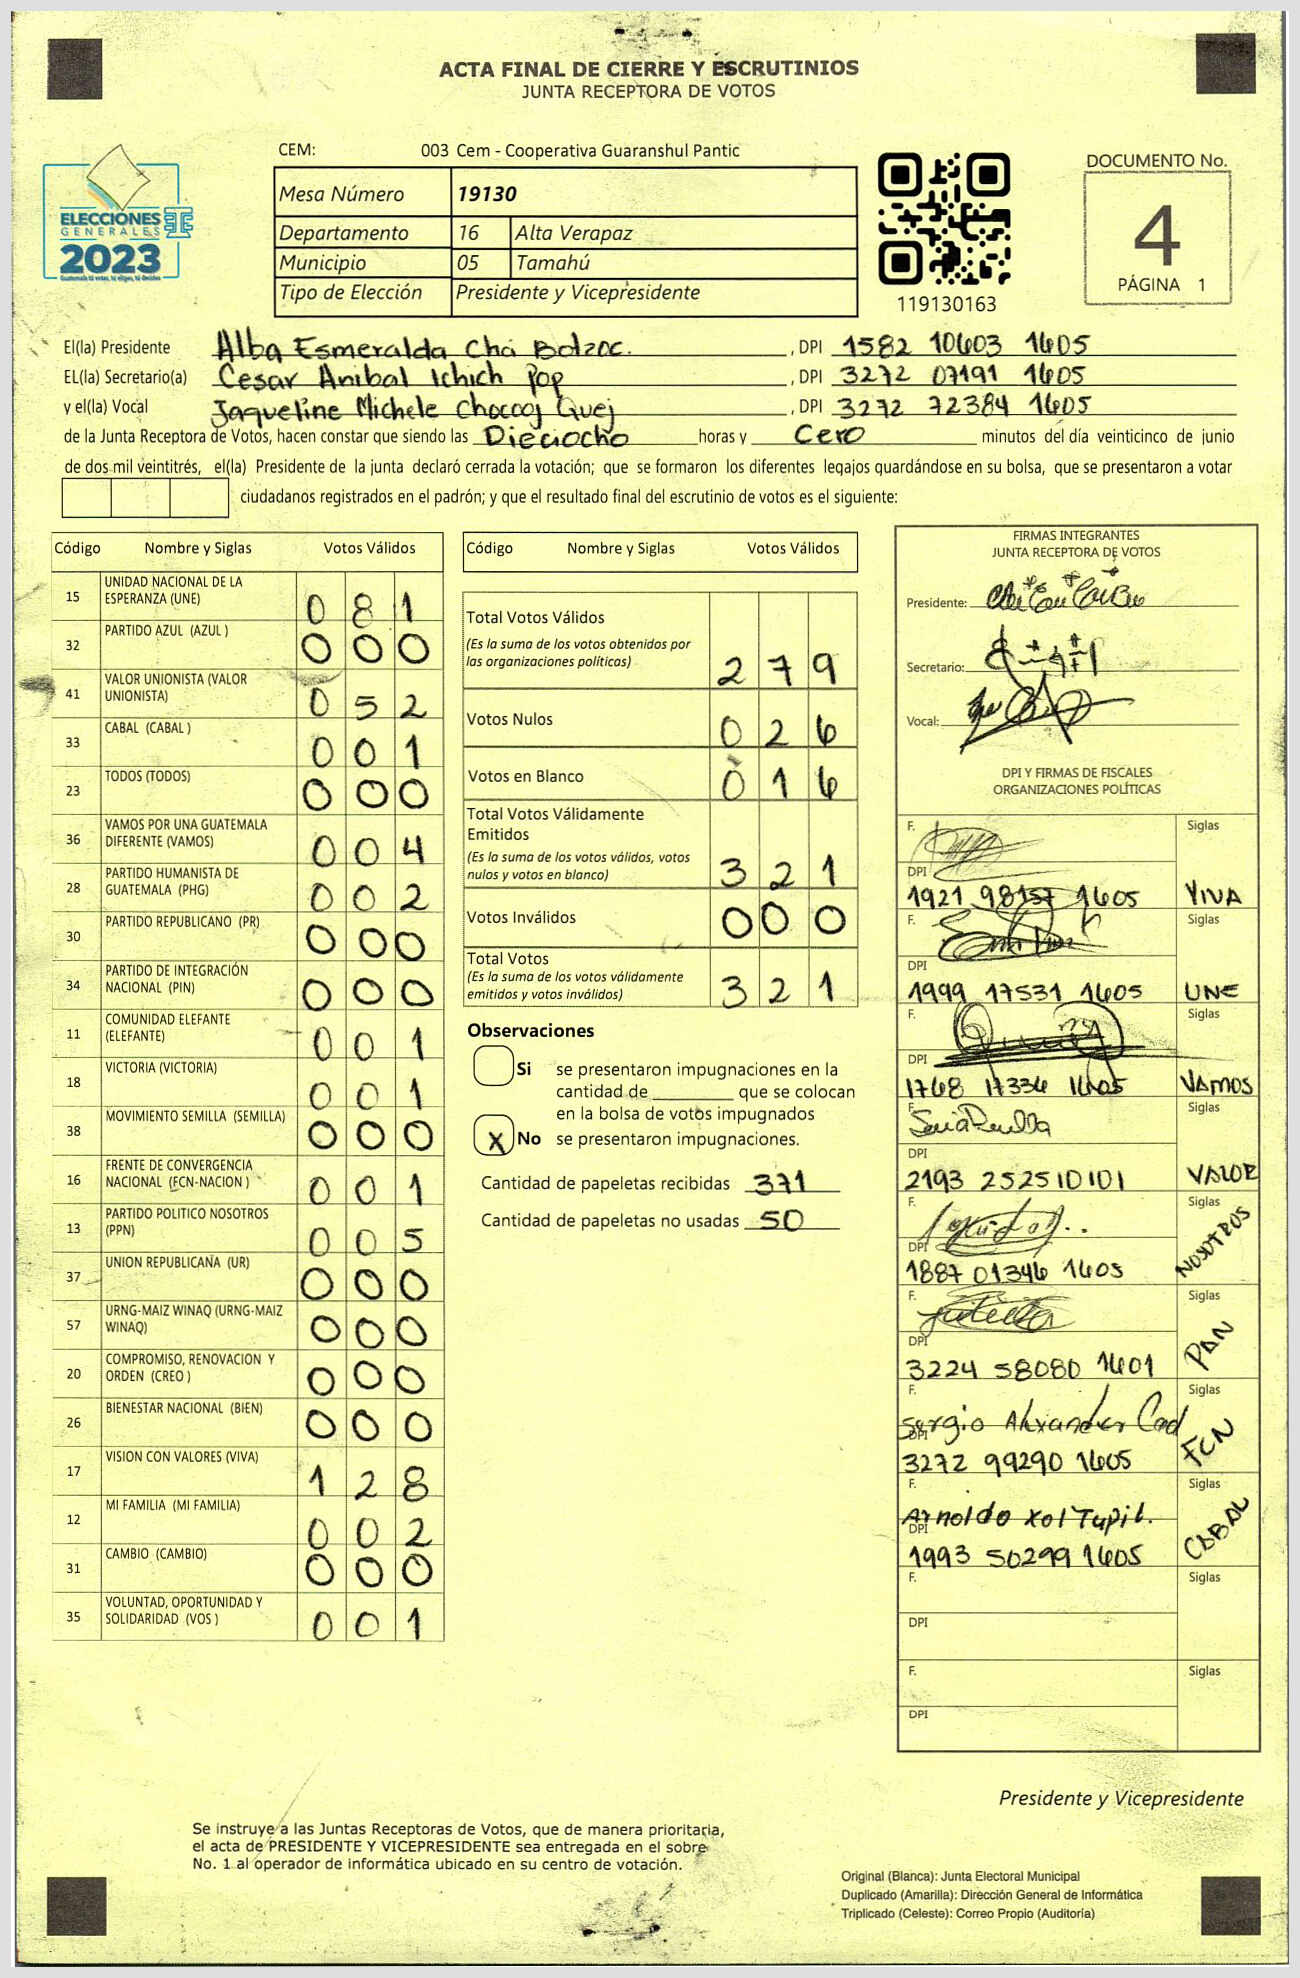 ACTA FINAL DE CIERRE Y ESCRUTINIOS
JUNTA RECEPTORA DE VOTOS
CEM: 003 Cem - Cooperativa Guaranshul Pantic
ELECCIONES
GENERALES
2023
Mesa Número 19130
Departamento 16 Alta Verapaz
Municipio 05 Tamahú
Tipo de Elección Presidente y Vicepresidente
119130163
DOCUMENTO No.
4
PÁGINA 1
El(la) Presidente Alba Esmeralda Cha Botzoc. , DPI 1582 10603 1605
EL(la) Secretario(a) Cesar Anibal Ichich Pop , DPI 3272 07191 1605
y el(la) Vocal Jaqueline Michele Chocooj Quej , DPI 3272 72384 1605
de la Junta Receptora de Votos, hacen constar que siendo las Dieciocho horas y Cero minutos del día veinticinco de junio
de dos mil veintitrés, el(la) Presidente de la junta declaró cerrada la votación; que se formaron los diferentes legajos quardándose en su bolsa, que se presentaron a votar
ciudadanos registrados en el padrón; y que el resultado final del escrutinio de votos es el siguiente:
Código Nombre y Siglas Votos Válidos
15 UNIDAD NACIONAL DE LA ESPERANZA (UNE) 0 8 1
32 PARTIDO AZUL (AZUL ) 0 0 0
41 VALOR UNIONISTA (VALOR UNIONISTA) 0 5 2
33 CABAL (CABAL ) 0 0 1
23 TODOS (TODOS) 0 0 0
36 VAMOS POR UNA GUATEMALA DIFERENTE (VAMOS) 0 0 4
28 PARTIDO HUMANISTA DE GUATEMALA (PHG) 0 0 2
30 PARTIDO REPUBLICANO (PR) 0 0 0
34 PARTIDO DE INTEGRACIÓN NACIONAL (PIN) 0 0 0
11 COMUNIDAD ELEFANTE (ELEFANTE) 0 0 1
18 VICTORIA (VICTORIA) 0 0 1
38 MOVIMIENTO SEMILLA (SEMILLA) 0 0 0
16 FRENTE DE CONVERGENCIA NACIONAL (FCN-NACION ) 0 0 1
13 PARTIDO POLITICO NOSOTROS (PPN) 0 0 5
37 UNION REPUBLICANA (UR) 0 0 0
57 URNG-MAIZ WINAQ (URNG-MAIZ WINAQ) 0 0 0
20 COMPROMISO, RENOVACION Y ORDEN (CREO ) 0 0 0
26 BIENESTAR NACIONAL (BIEN) 0 0 0
17 VISION CON VALORES (VIVA) 1 2 8
12 MI FAMILIA (MI FAMILIA) 0 0 2
31 CAMBIO (CAMBIO) 0 0 0
35 VOLUNTAD, OPORTUNIDAD Y SOLIDARIDAD (VOS ) 0 0 1
Código Nombre y Siglas Votos Válidos
Total Votos Válidos
(Es la suma de los votos obtenidos por
las organizaciones políticas) 2 7 9
Votos Nulos 0 2 6
Votos en Blanco 0 1 6
Total Votos Válidamente
Emitidos
(Es la suma de los votos válidos, votos
nulos y votos en blanco) 3 2 1
Votos Inválidos 0 0 0
Total Votos
(Es la suma de los votos válidamente
emitidos y votos inválidos) 3 2 1
Observaciones
Si se presentaron impugnaciones en la
cantidad de ________ que se colocan
en la bolsa de votos impugnados
X No se presentaron impugnaciones.
Cantidad de papeletas recibidas 371
Cantidad de papeletas no usadas 50
FIRMAS INTEGRANTES
JUNTA RECEPTORA DE VOTOS
Presidente:
Secretario:
Vocal:
DPI Y FIRMAS DE FISCALES
ORGANIZACIONES POLÍTICAS
F. Siglas
DPI
1921 98157 1605 VIVA
F. Siglas
DPI
1999 17531 1605 UNE
F. Siglas
DPI
1768 17336 1605 VAMOS
F. Siglas
DPI
2193 25251 0101 VALOR
F. Siglas
DPI
1887 01346 1605 NOSOTROS
F. Siglas
DPI
3224 58080 1601 PAN
F. Siglas
Sergio Alexander Cad
DPI
3272 99290 1605 FCN
F. Siglas
Arnoldo Xol Tupil.
DPI
1993 50299 1605 CABAL
F. Siglas
DPI
F. Siglas
DPI
Presidente y Vicepresidente
Se instruye a las Juntas Receptoras de Votos, que de manera prioritaria,
el acta de PRESIDENTE Y VICEPRESIDENTE sea entregada en el sobre
No. 1 al operador de informática ubicado en su centro de votación.
Original (Blanca): Junta Electoral Municipal
Duplicado (Amarilla): Dirección General de Informática
Triplicado (Celeste): Correo Propio (Auditoría)